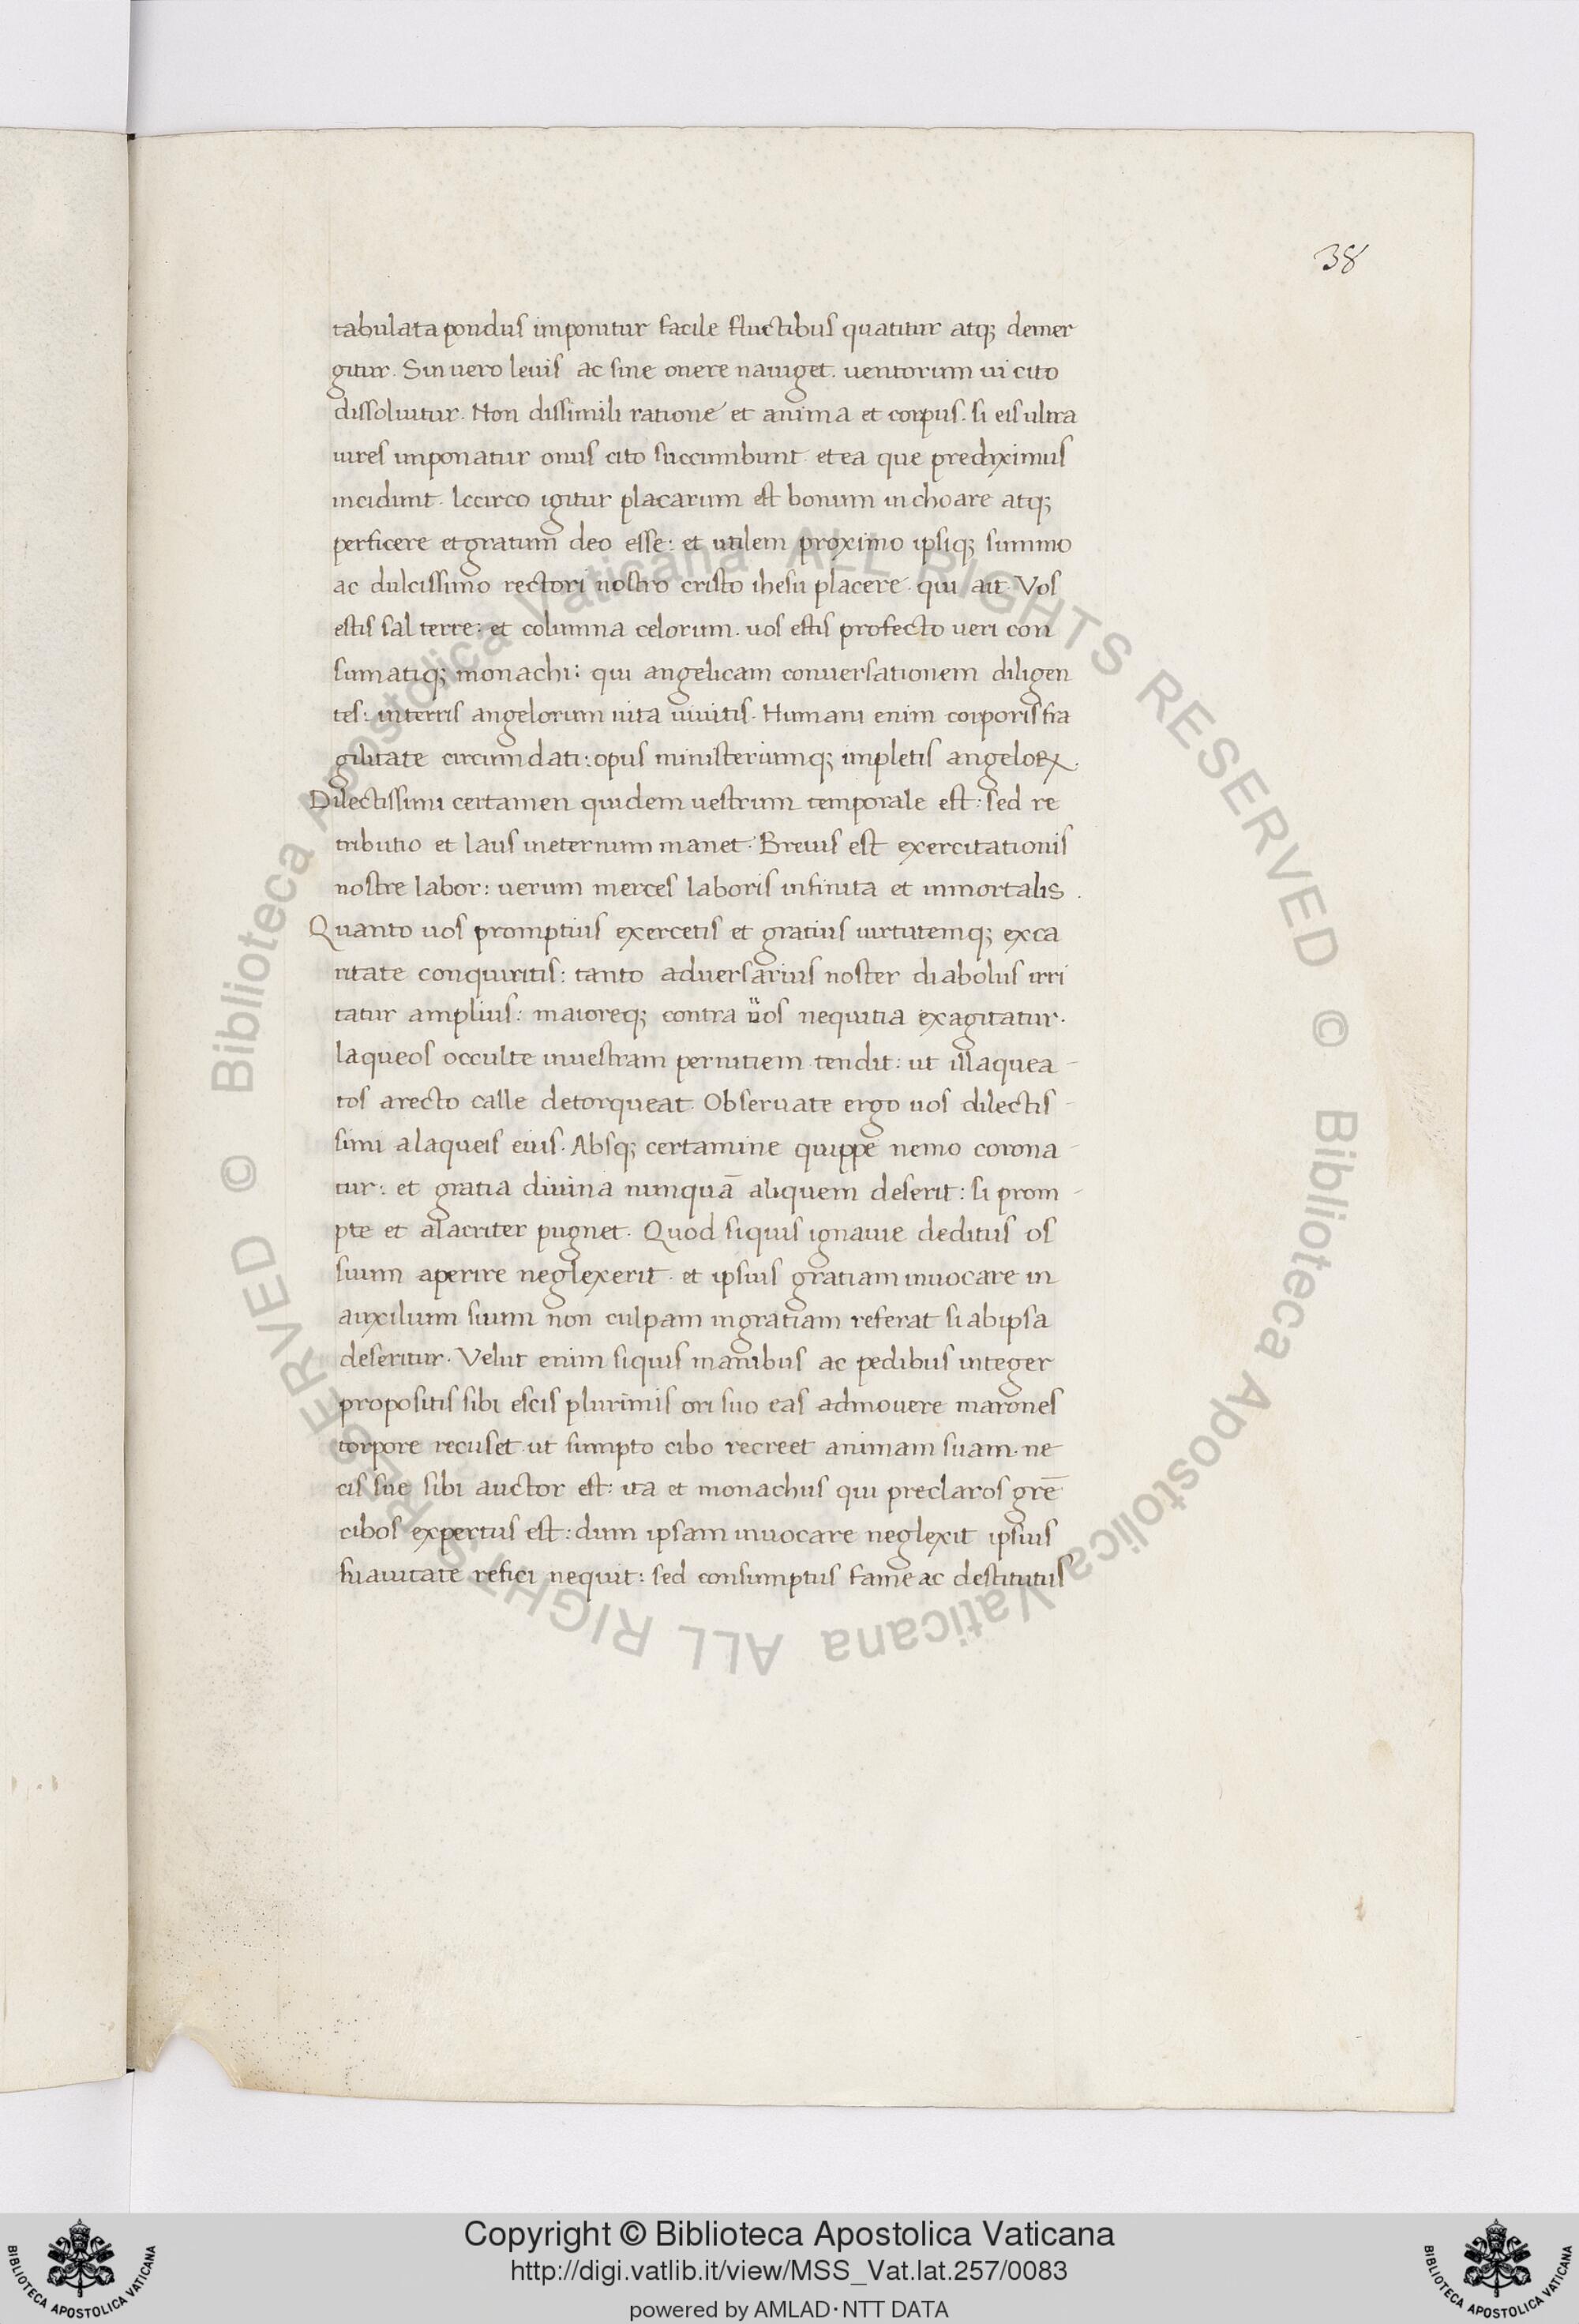 38
tabulata pondus imponitur facile fluctibus quatitur atq; demer
gitur. Sin vero levis ac sine onere naviget. ventorum vi cito
dissoluitur. Non dissimili ratione et anima et corpus. si eis ultra
vires imponatur onus cito succumbunt et ea que prediximus
incidunt. Iccirco igitur placarum est bonum inchoare atq;
perficere et gratum deo esse: et utilem proximo ipsiq; summo
ac dulcissimo rectori nostro cristo ihesu placere. qui ait. Vos
estis sal terre: et columna celorum. vos estis profecto veri con
sumatiq; monachi: qui angelicam conversationem diligen
tes: in terris angelorum vita vivitis. Humani enim corporis fra
gilitate circumdati: opus ministeriumq; impletis angeloꝝ.
Dilectissimi certamen quidem vestrum temporale est: sed re
tributio et laus in eternum manet. Brevis est exercitationis
nostre labor: verum merces laboris infinita et inmortalis.
Quanto vos promptius exercetis et gratius virtutemq; ex ca
ritate conquiritis: tanto adversarius noster diabolus irri
tatur amplius: maioreq; contra vos nequitia exagitatur.
laqueos occulte in vestram pernitiem tendit: ut illaquea-
tos a recto calle detorqueat. Observate ergo vos dilectis-
simi a laqueis eius. Absq; certamine quippe nemo corona-
tur: et gratia divina nunquā aliquem deserit: si prom-
pte et alacriter pugnet. Quod siquis ignavie deditus os
suum aperire neglexerit. et ipsius gratiam invocare in
auxilium suum non culpam in gratiam referat si ab ipsa
deseritur. Velut enim siquis manibus ac pedibus integer
propositis sibi escis plurimis ori suo eas admovere marones
torpore recuset ut sumpto cibo recreet animam suam. ne
cis sue sibi auctor est: ita et monachus qui preclaros grē
cibos expertus est: dum ipsam invocare neglexit ipsius
suavitate refici nequit: sed consumptus fame ac destitutus
© Biblioteca Apostolica Vaticana ALL RIGHTS RESERVED
© Biblioteca Apostolica Vaticana ALL RIGHTS RESERVED
Copyright © Biblioteca Apostolica Vaticana
http://digi.vatlib.it/view/MSS_Vat.lat.257/0083
powered by AMLAD·NTT DATA
BIBLIOTECA APOSTOLICA VATICANA
BIBLIOTECA APOSTOLICA VATICANA